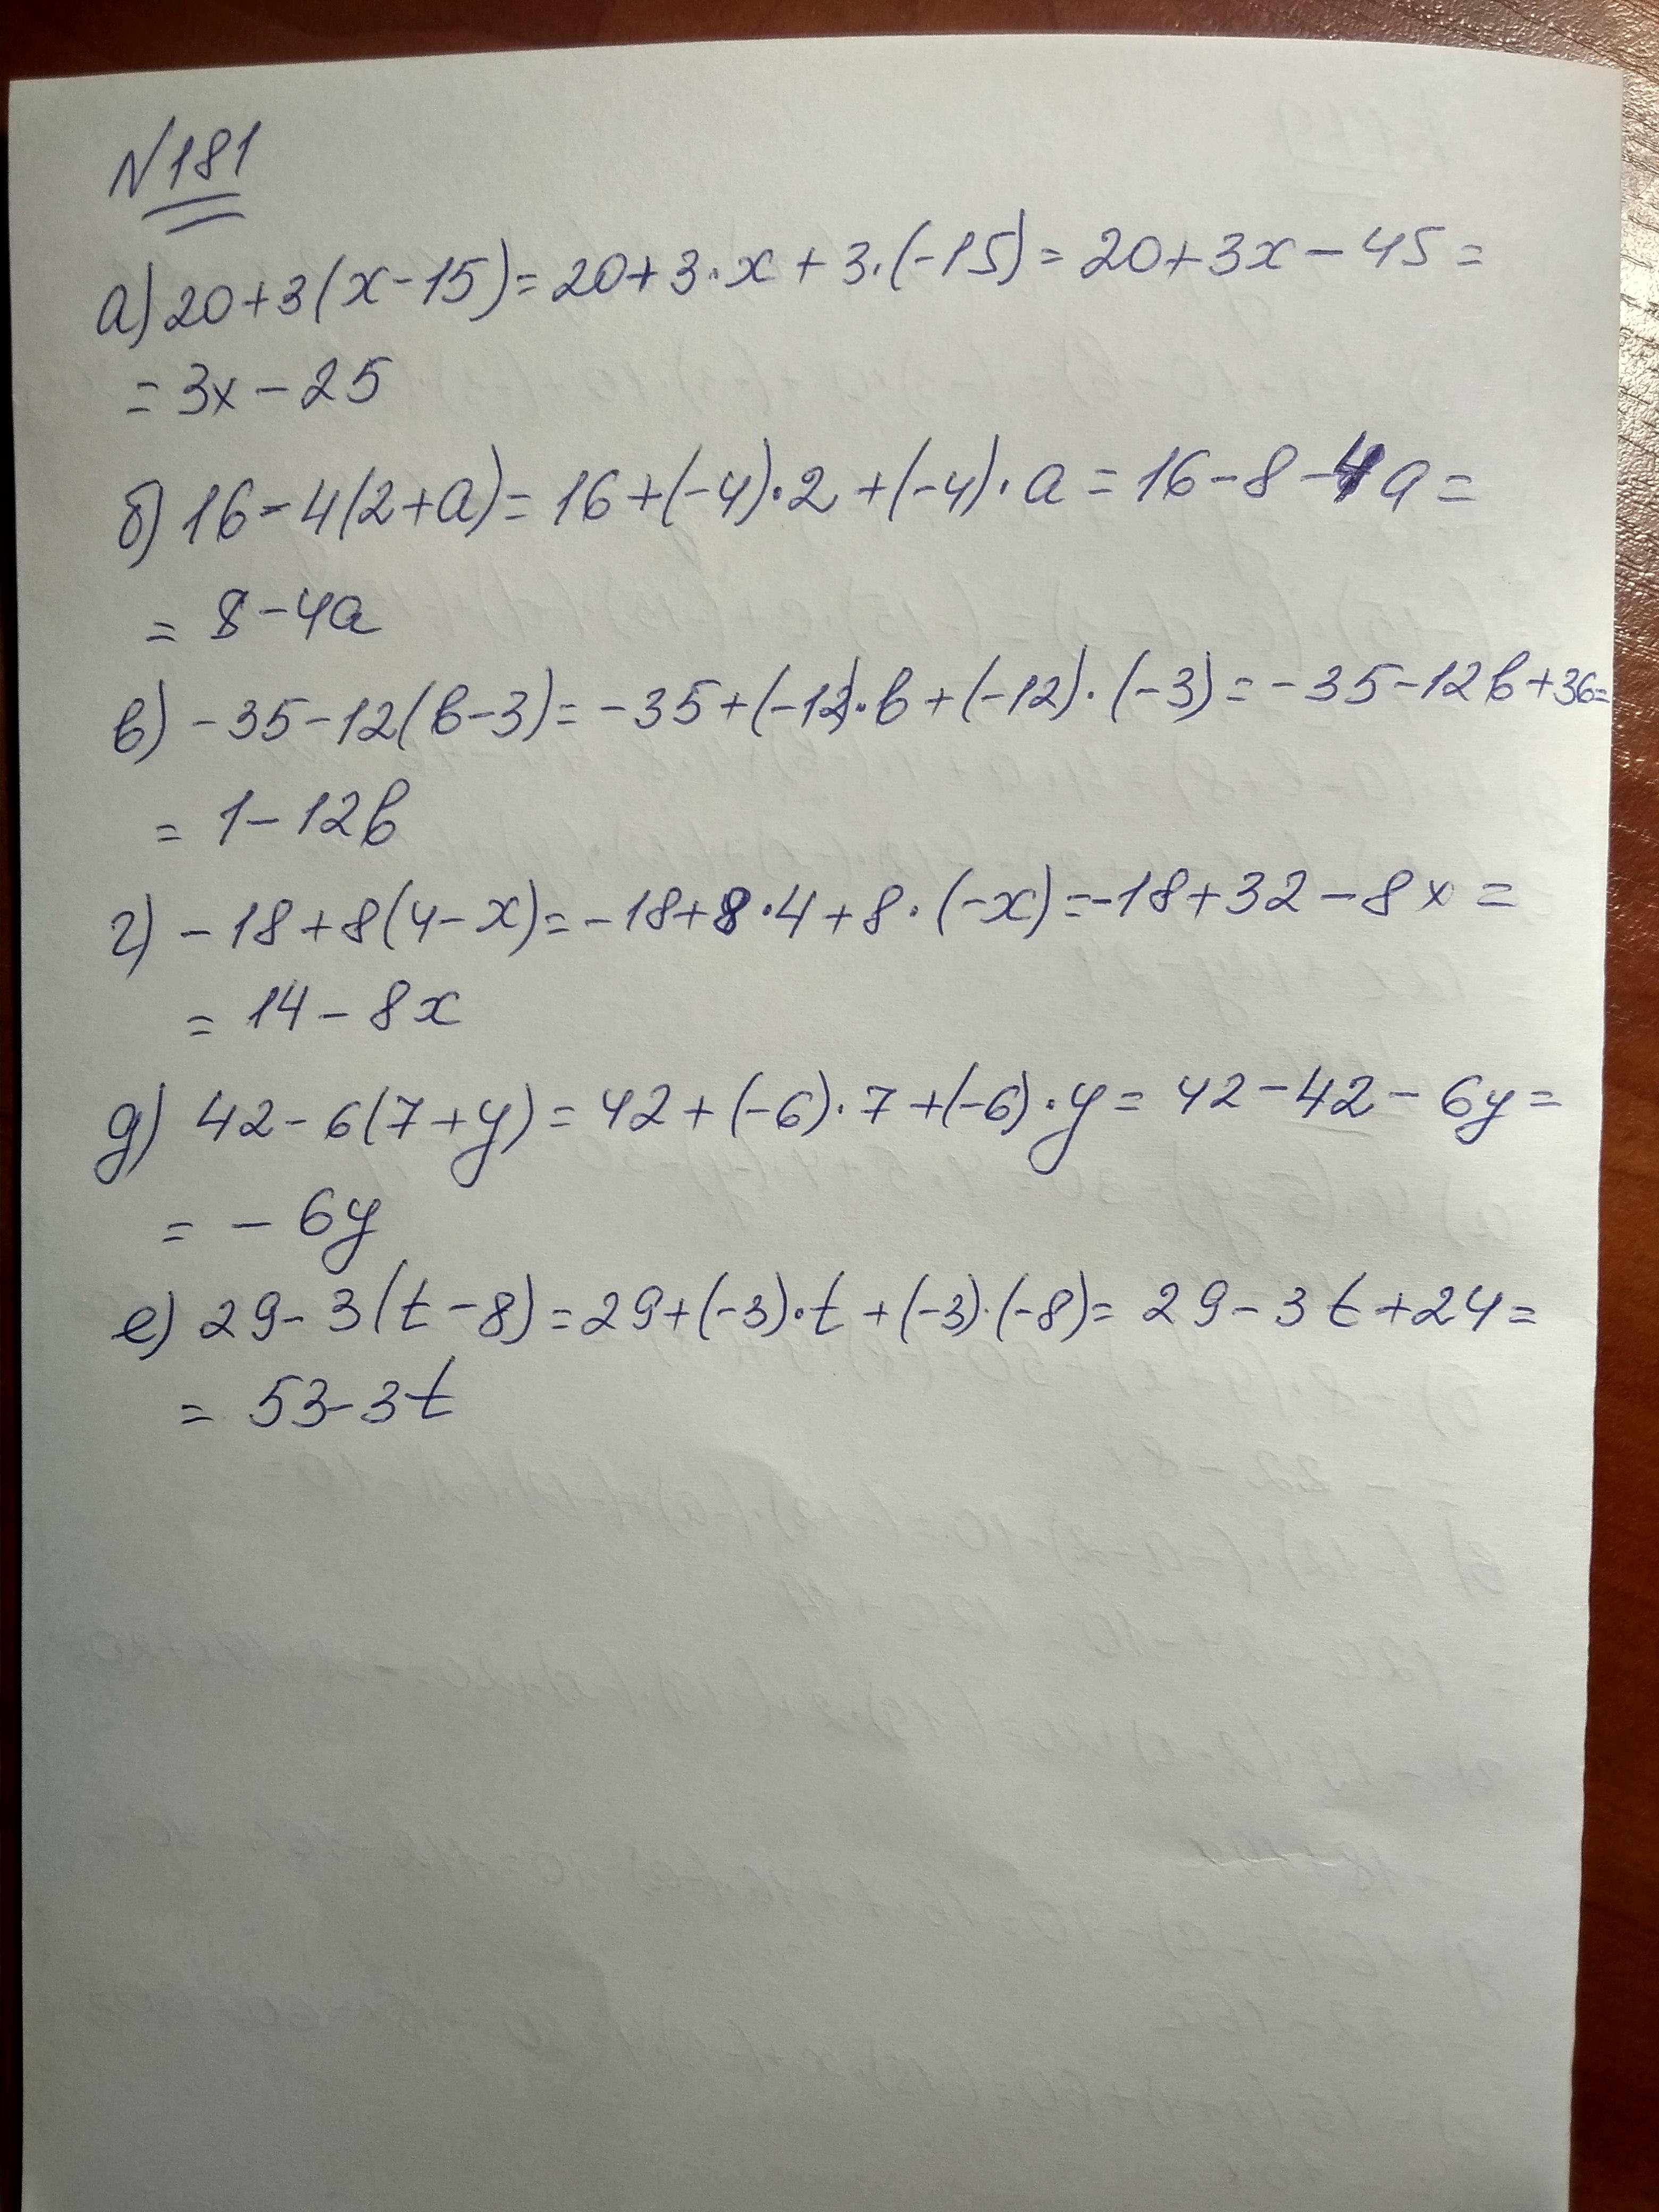 N181
а) 20+3(x-15)=20+3·x+3·(-15)=20+3x-45=
=3x-25
б) 16-4(2+a)=16+(-4)·2+(-4)·a=16-8-4a=
=8-4a
в) -35-12(b-3)=-35+(-12)·b+(-12)·(-3)=-35-12b+36=
=1-12b
г) -18+8(4-x)=-18+8·4+8·(-x)=-18+32-8x=
=14-8x
д) 42-6(7+y)=42+(-6)·7+(-6)·y=42-42-6y=
=-6y
е) 29-3(t-8)=29+(-3)·t+(-3)·(-8)=29-3t+24=
=53-3t